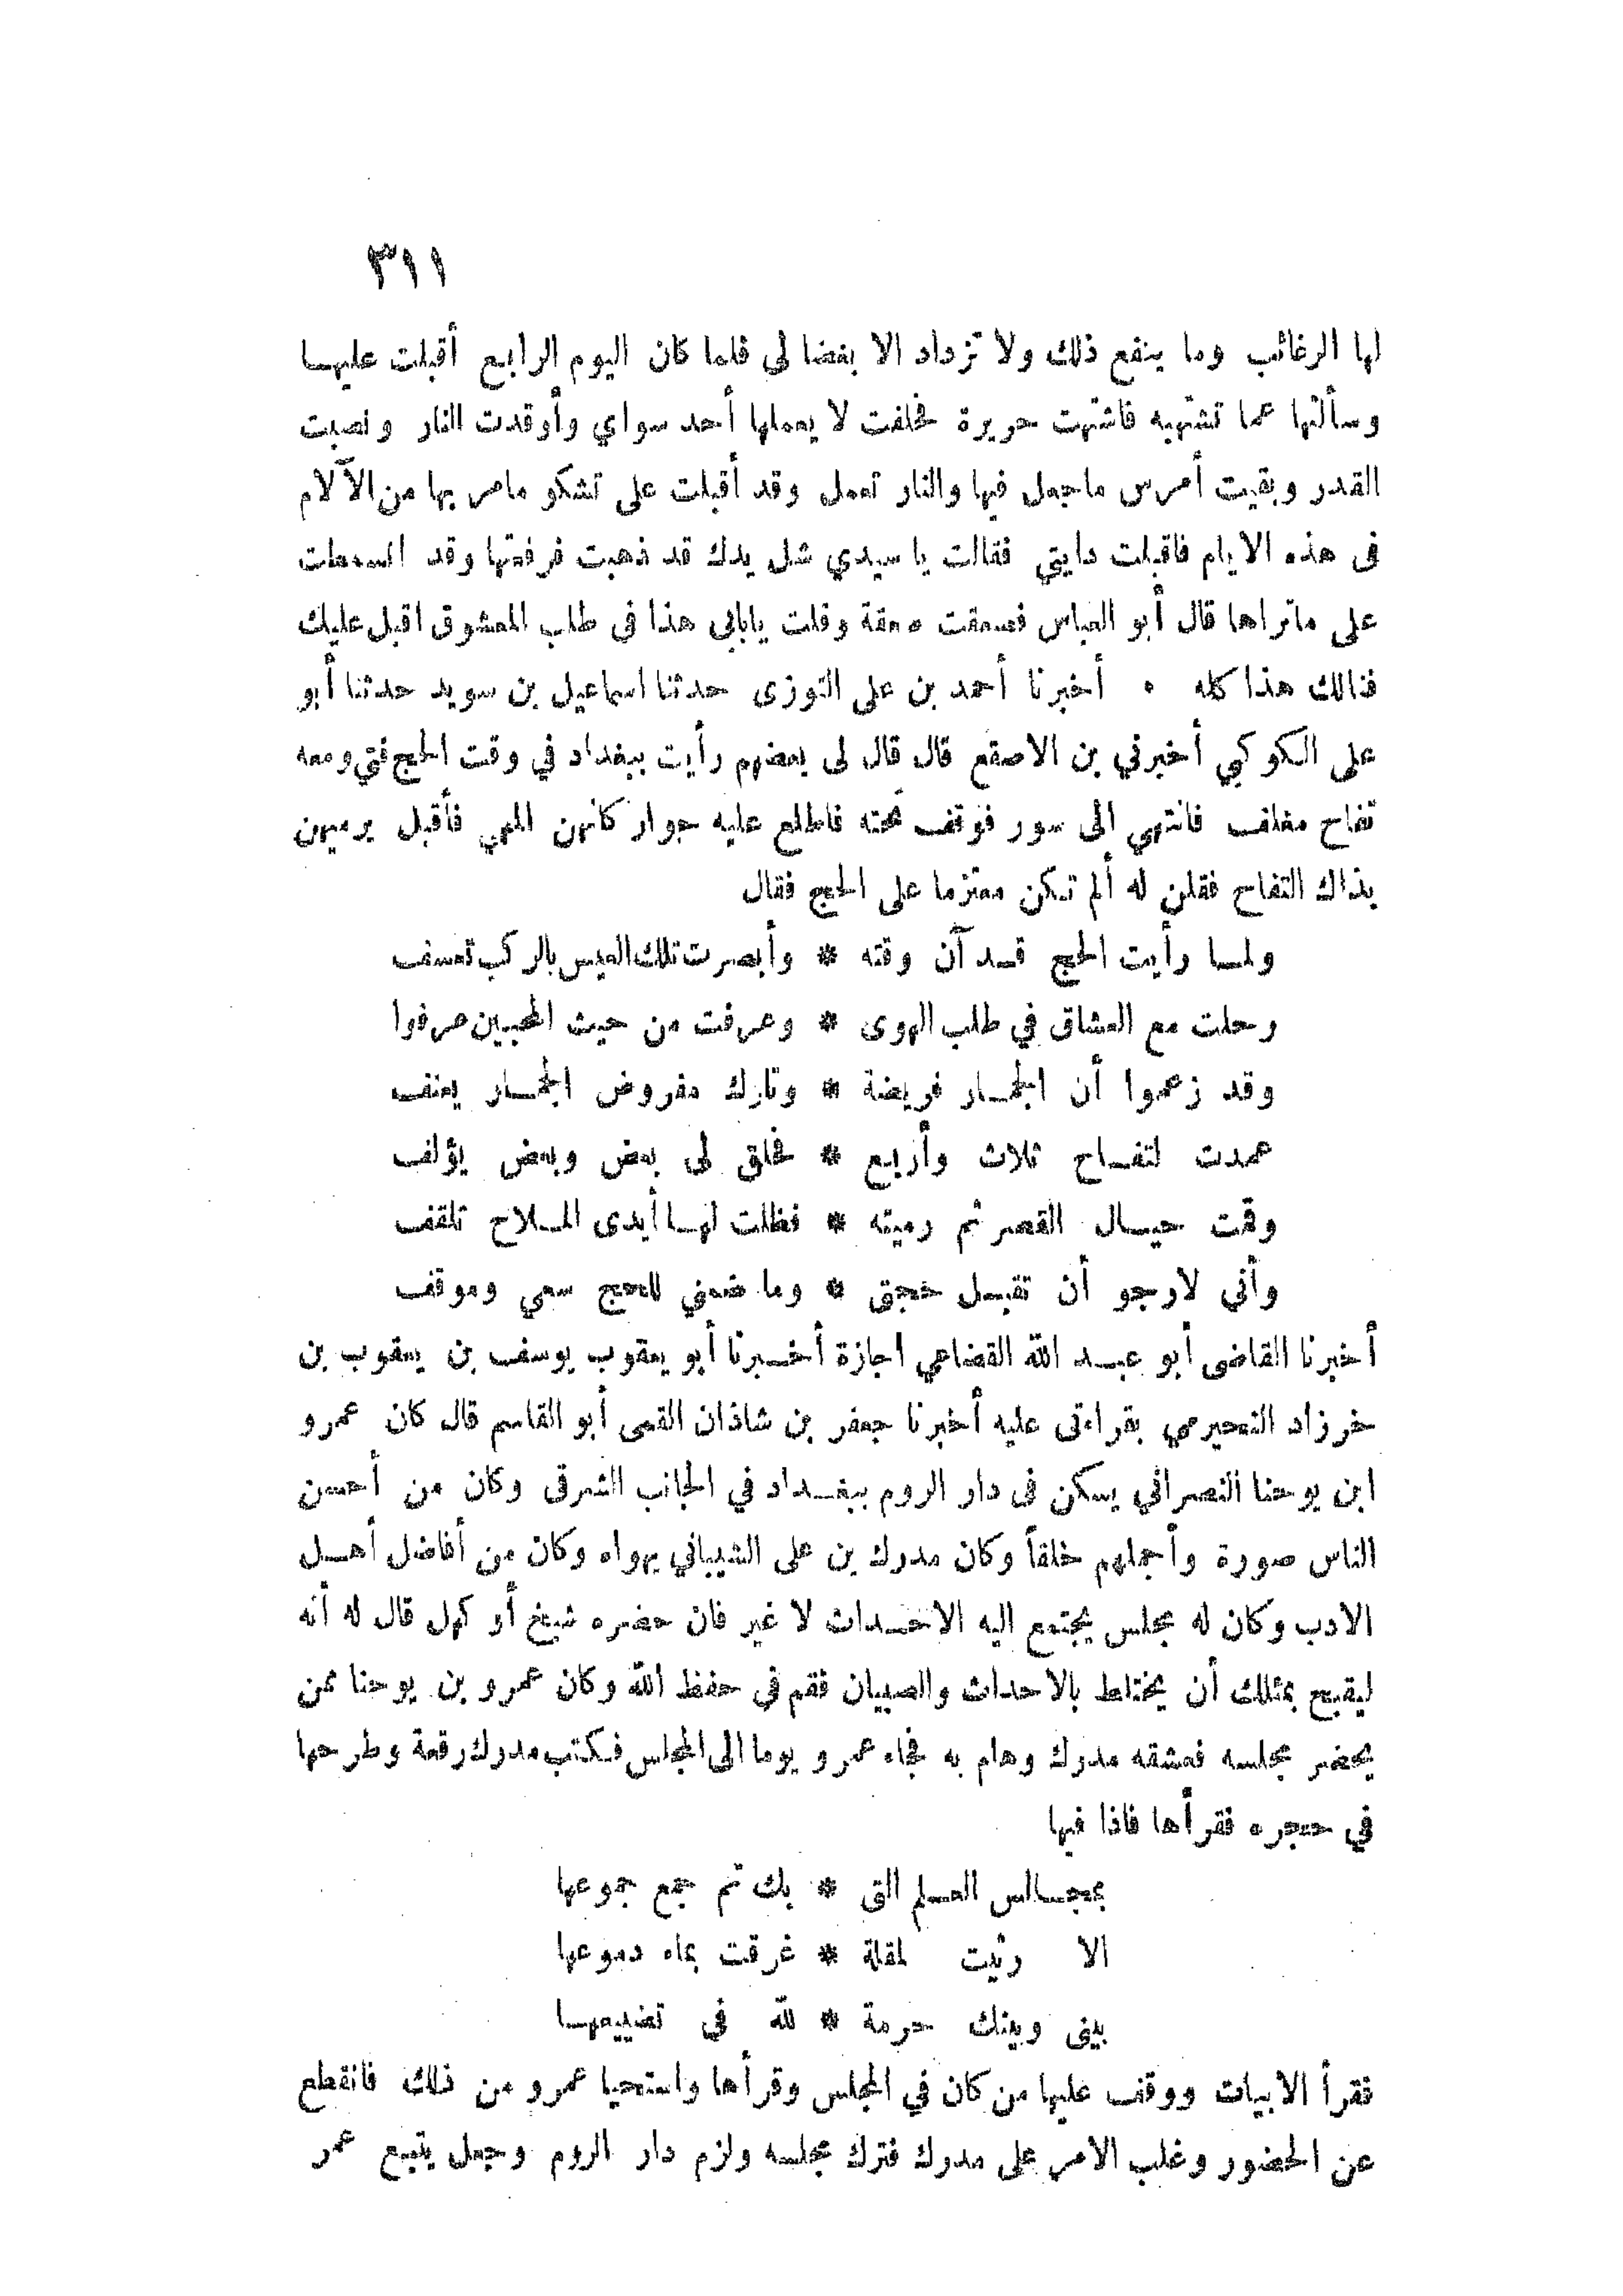 ٣١١
لها الرغائب وما ينفع ذلك ولا تزداد الا بغضا لى فلما كان اليوم الرابع أقبلت عليها
وسألتها عما تشتهيه فاشتهت حريرة فحلفت لا يعملها أحد سواي وأوقدت النار ونصبت
القدر وبقيت أمرس ماجعل فيها والنار تعمل وقد أقبلت على تشكو مامر بها من الآلام
فى هذه الايام فاقبلت دايتي فقالت يا سيدي شل يدك قد ذهبت فرفعتها وقد انسمطت
على ماتراها قال أبو العباس فصعقت صعقة وقلت يابابي هذا فى طلب المعشوق اقبل عليك
فنالك هذا كله • أخبرنا أحمد بن على التوزى حدثنا اسماعيل بن سويد حدثنا أبو
على الكوكبي أخبرني بن الاصقع قال قال لى بعضهم رأيت ببغداد في وقت الحج فتي ومعه
تفاح مغلف فانتهي الى سور فوقف تحته فاطلع عليه جوار كأنهن المهي فأقبل يرميهن
بذاك التفاح فقلن له ألم تكن معتزما على الحج فقال
ولما رأيت الحج قد آن وقته * وأبصرت تلك العيس بالركب تعسف
رحلت مع العشاق في طلب الهوى * وعرفت من حيث المحبين عرفوا
وقد زعموا أن الجمار فريضة * وتارك مفروض الجمار يعنف
عمدت لتفاح ثلاث وأربع * فخلق لى بعض وبعض يؤلف
وقمت حيال القصر ثم رميته * فظلت لها أيدى الملاح تلقف
وأني لارجو أن تقبل حجتى * وما ضمني للحج سعي وموقف
أخبرنا القاضى أبو عبد الله القضاعي اجازة أخبرنا أبو يعقوب يوسف بن يعقوب بن
خرزاد النجيرمي بقراءتى عليه أخبرنا جعفر بن شاذان القمى أبو القاسم قال كان عمرو
ابن يوحنا النصراني يسكن فى دار الروم ببغداد في الجانب الشرقى وكان من أحسن
الناس صورة وأجملهم خلقاً وكان مدرك بن على الشيباني يهواه وكان من أفاضل أهل
الادب وكان له مجلس يجتمع اليه الاحداث لا غير فان حضره شيخ أو كهل قال له أنه
ليقبح بمثلك أن يختلط بالاحداث والصبيان فقم في حفظ الله وكان عمرو بن يوحنا ممن
يحضر مجلسه فعشقه مدرك وهام به فجاء عمرو يوما الى المجلس فكتب مدرك رقعة وطرحها
في حجره فقرأها فاذا فيها
بمجالس العلم التى * بك تم جمع جموعها
الا رثيت لمقلة * غرقت بماء دموعها
بينى وبينك حرمة * لله فى تضييعها
فقرأ الابيات ووقف عليها من كان في المجلس وقرأها واستحيا عمرو من ذلك فانقطع
عن الحضور وغلب الامر على مدرك فترك مجلسه ولزم دار الروم وجعل يتبع عمر